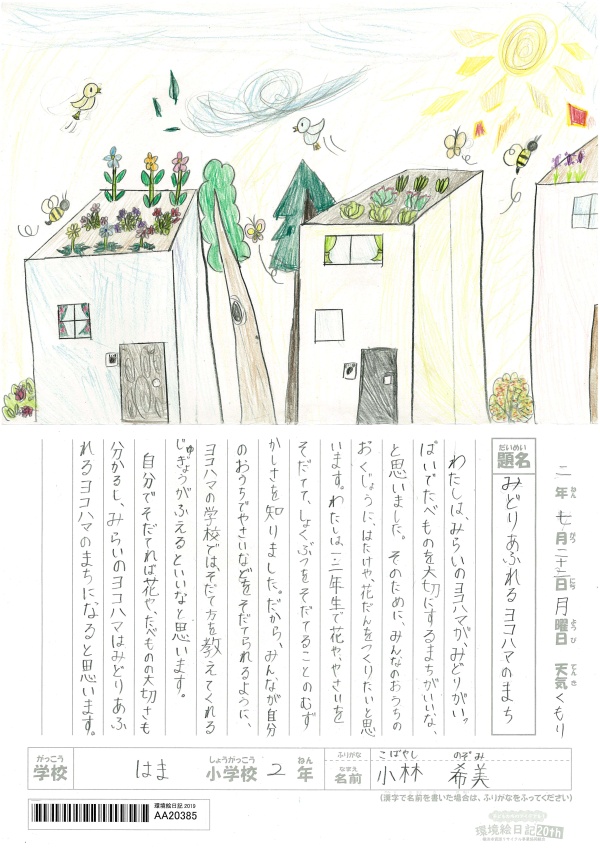 二年七月二十二日月曜日 天気くもり
だいめい
題名 みどりあふれるヨコハマのまち
わたしは、みらいのヨコハマが、みどりがいっ
ぱいでたべものを大切にするまちがいいな、
と思いました。そのために、みんなのおうちの
おくじょうに、はたけや、花だんをつくりたいと思
います。わたしは、一、二年生で花や、やさいを
そだてて、しょくぶつをそだてることのむず
かしさを知りました。だから、みんなが自分
のおうちでやさいなどをそだてられるように、
ヨコハマの学校では、そだて方を教えてくれる
じゅぎょうがふえるといいなと思います。
自分でそだてれば花や、たべものの大切さも
分かるし、みらいのヨコハマはみどりあふ
れるヨコハマのまちになると思います。
がっこう しょうがっこう ねん ふりがな こばやし のぞみ
学校 はま 小学校 2 年 なまえ 名前 小林 希美
(漢字で名前を書いた場合は、ふりがなをふってください)
環境絵日記 2019
AA20385
環境絵日記20th